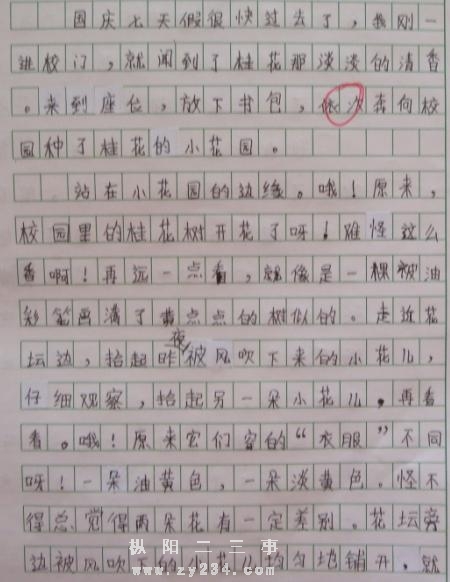 国庆七天假很快过去了，我刚一
进校门，就闻到了桂花那淡淡的清香
。来到座台，放下书包，依次奔向校
园种了桂花的小花园。
站在小花园的边缘。哦！原来，
校园里的桂花树开花了呀！难怪这么
香啊！再远一点看，就像是一棵被油
彩笔画满了黄点点的树似的。走近花
坛边，拾起昨夜被风吹下来的小花儿，
仔细观察，拾起另一朵小花儿，再看
看。哦！原来它们穿的“衣服”不同
呀！一朵油黄色，一朵淡黄色。怪不
得总觉得两朵花有一定差别。花坛旁
边被风吹的花儿均匀地铺开，就
枞阳二三事
www.zy234.com